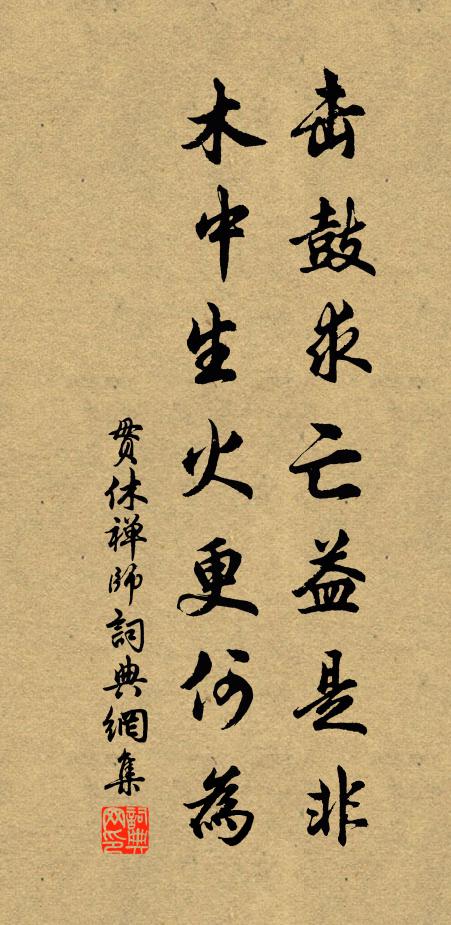 击鼓求亡益是非
木中生火更何為
貫休禅師詞典網集
詞典网印